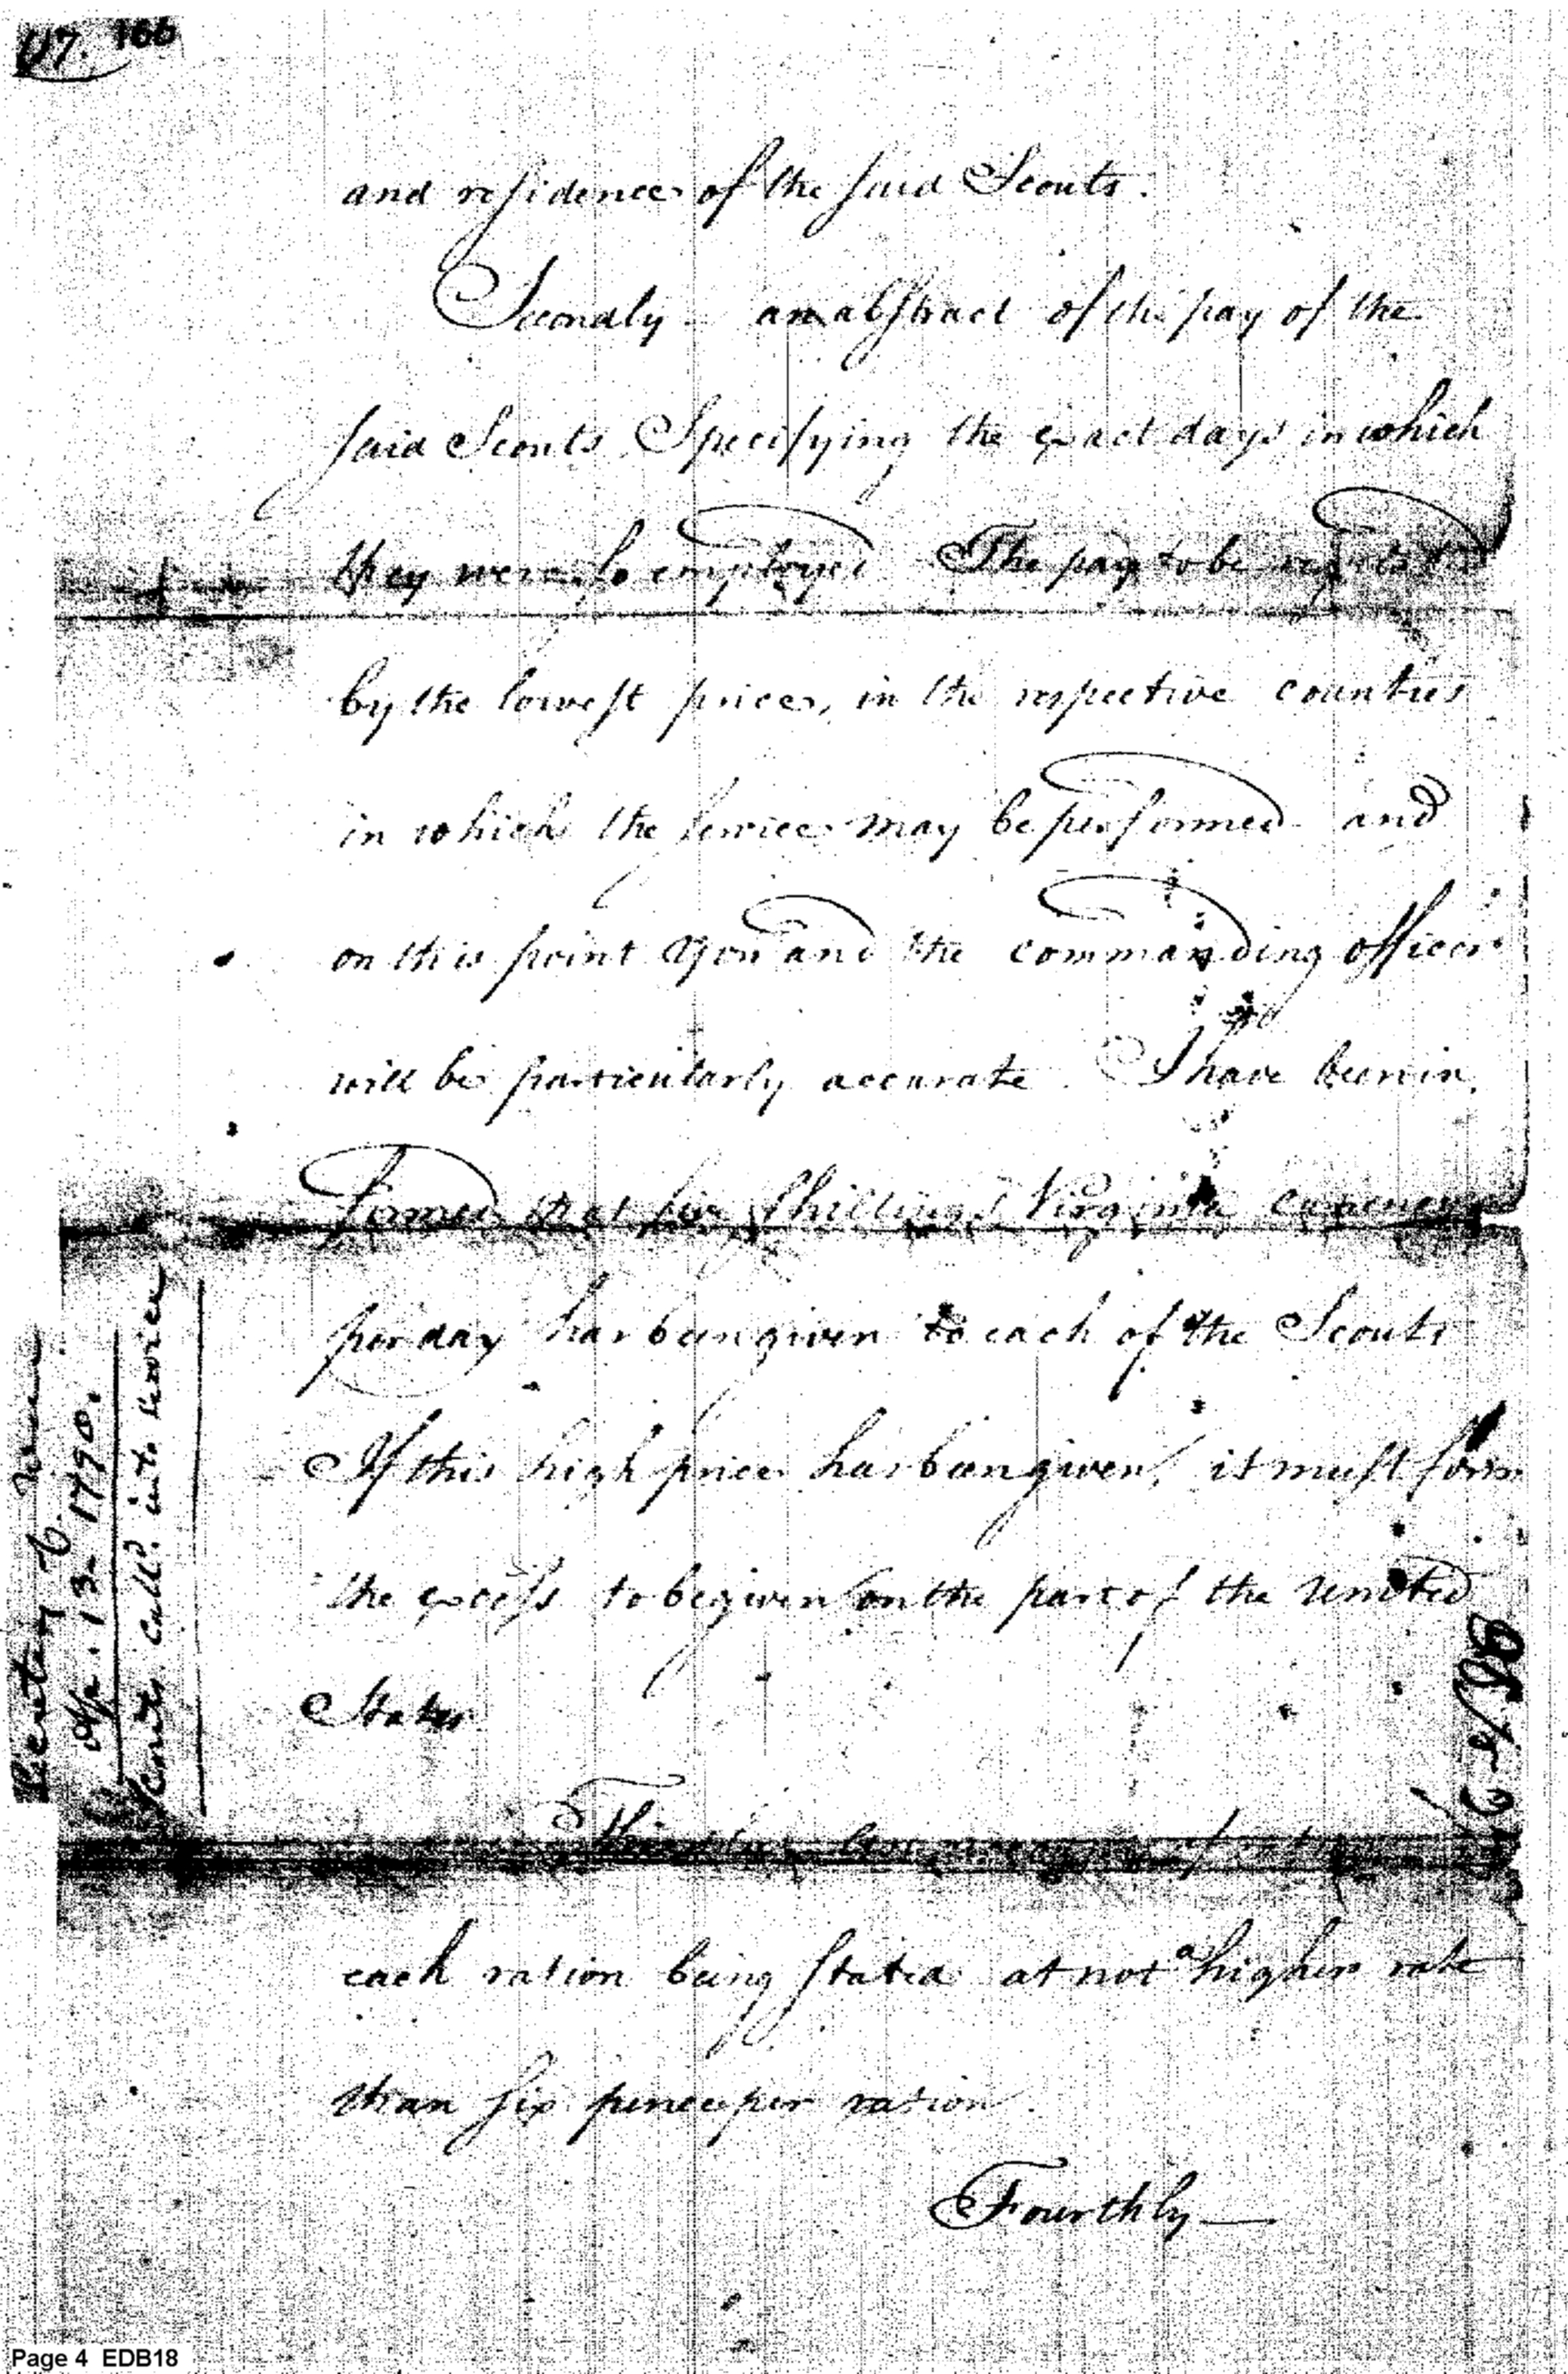 67. 166
and residence of the said Scouts.
Secondly an abstract of the pay of the
said Scouts Specifying the exact days in which
they were so employed The pay to be
by the lowest prices, in the respective counties
in which the service may be performed and
on this point you and the commanding officer
will be particularly accurate. I have been in,
formed that shillings Virginia currency
per day has been given to each of the Scouts
If this high price has been given, it must form
the excess to be given on the part of the United
States
Thirdly
each ration being stated at not a higher rate
than six pence per ration.
Fourthly—
13 1790.
Scouts call'd into service
Page 4 EDB18